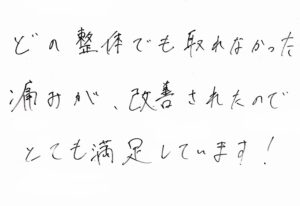 どの整体でも取れなかった
痛みが、改善されたので
とても満足しています!